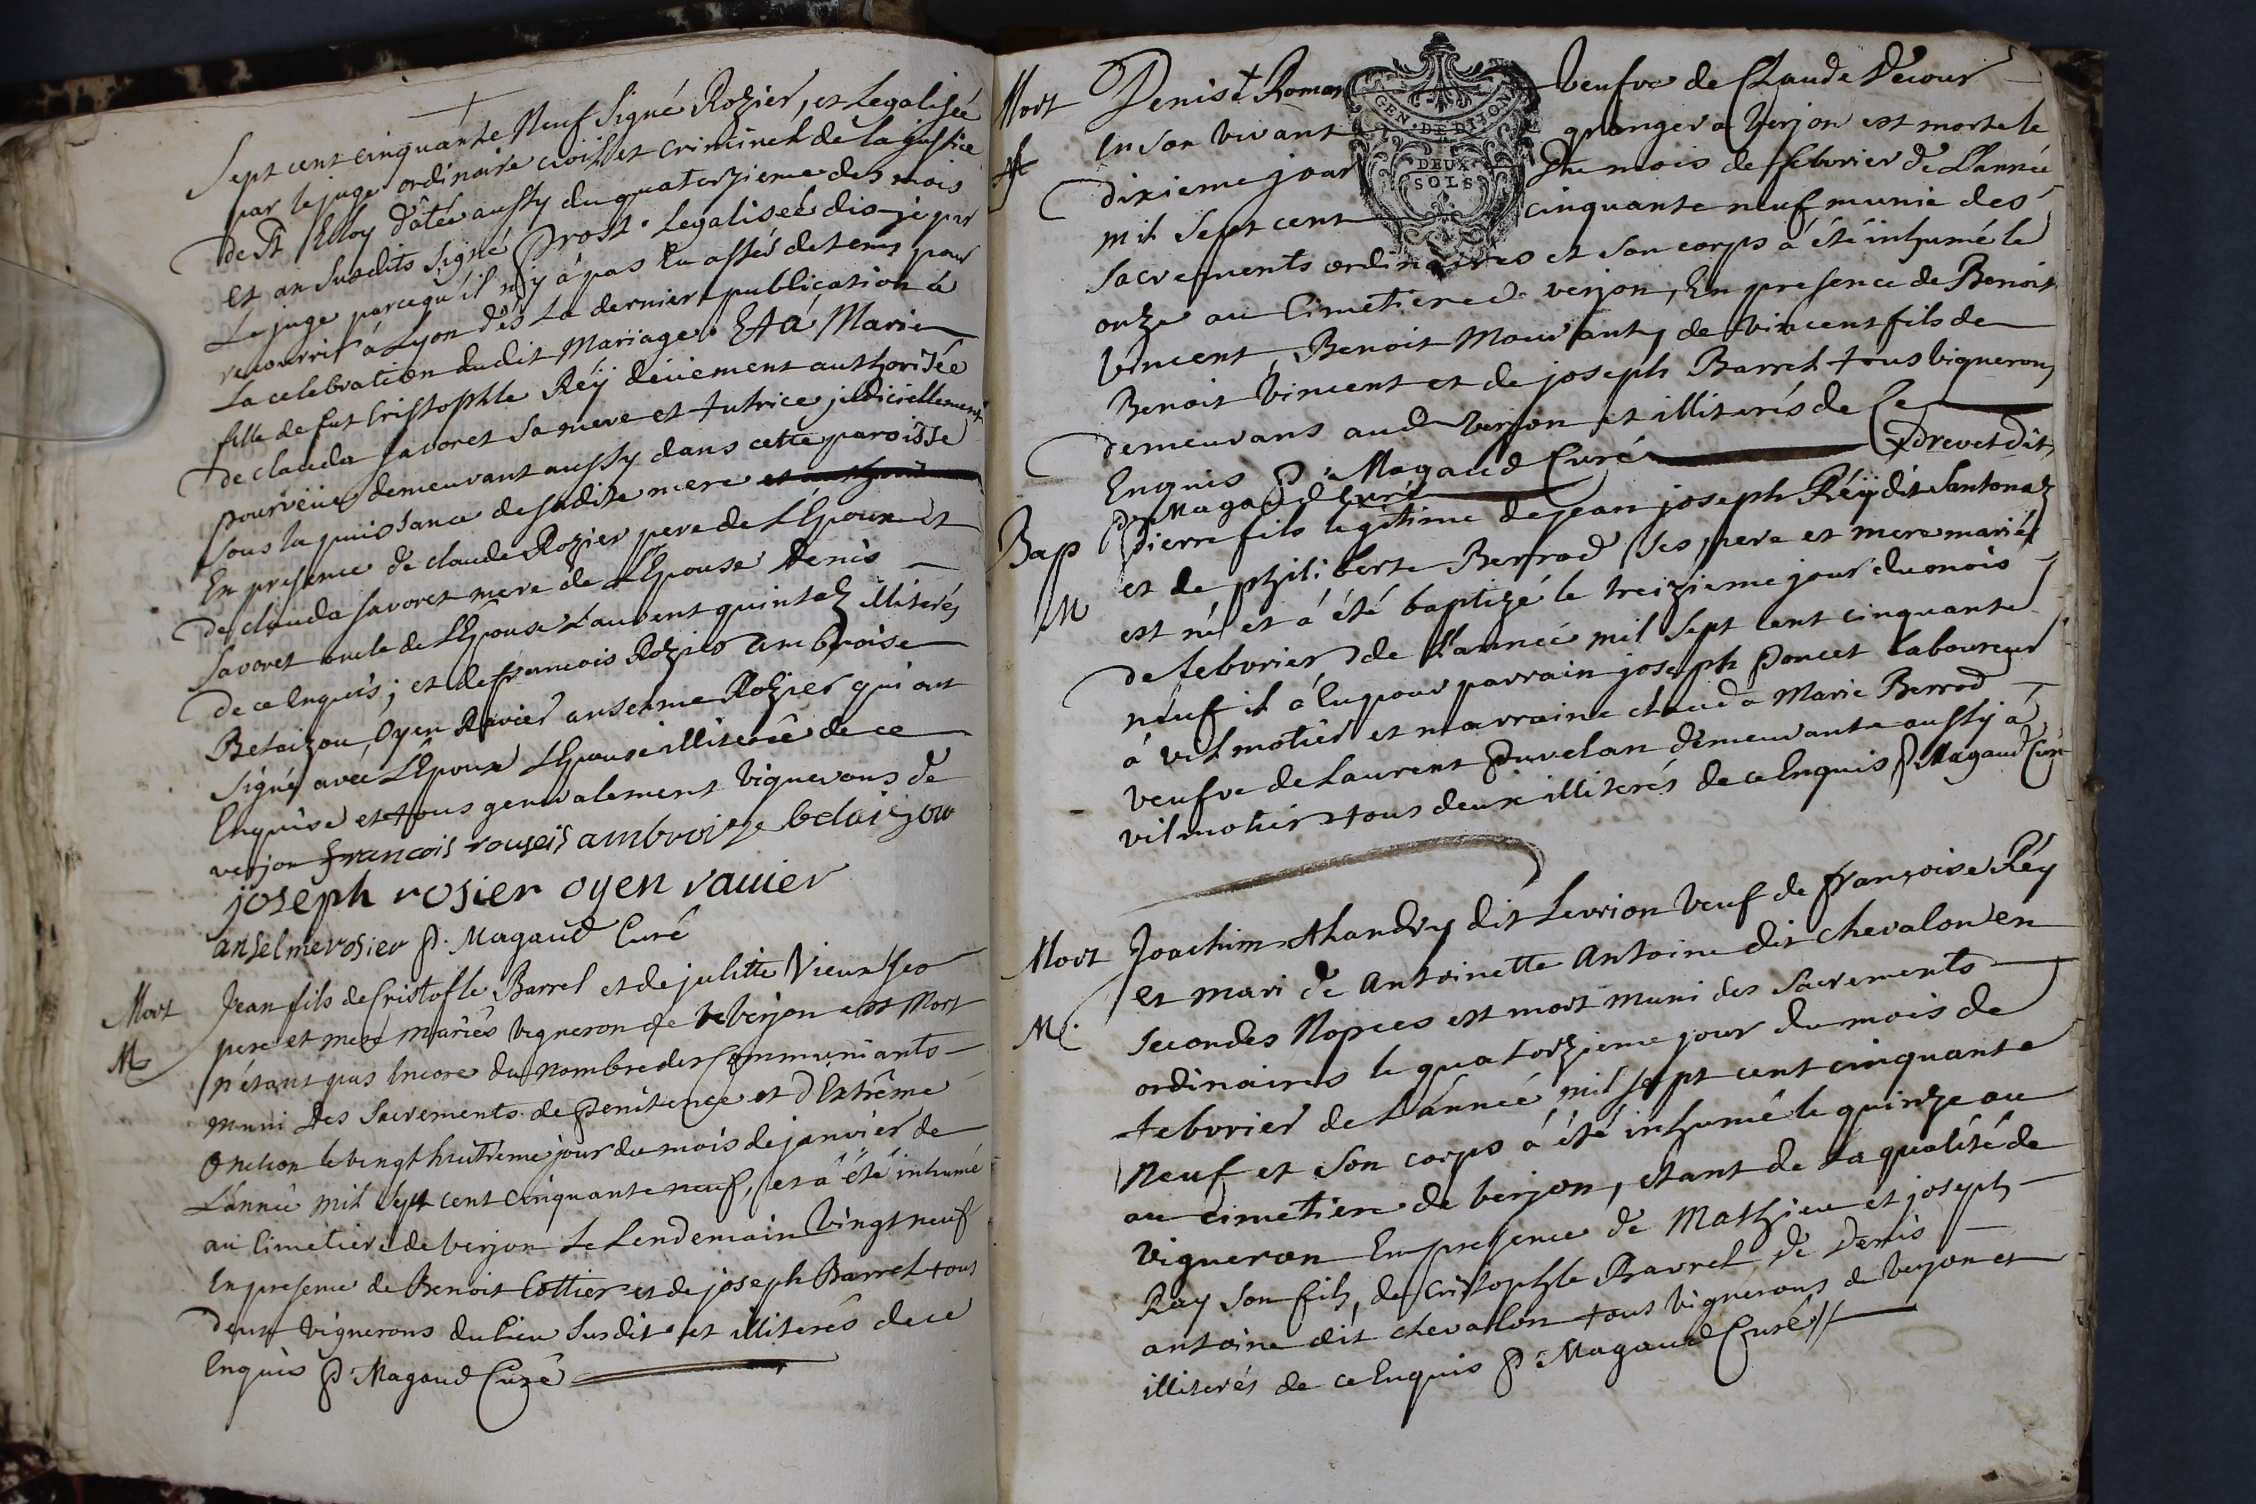 Sept cent cinquante Neuf Signé Rozier, et Legalisée
par le juge ordinaire civil et criminel de la justice
de St Elloy dâtée aussy du quatorzieme des mois
et an susdits signé Prost. Legalisée dis-je par
Le juge parcequ'il n'y à pas Eu assés de tems pour
recourrir à Lyon dès La derniere publication à
La celebration dudit Mariage. Et à Marie
fille de fut Cristophle Réÿ dëuement authorisée
de clauda favoret sa mere et tutrice judiciellement
pourvëue demeurant aussy dans cette paroisse
sous la puissance de sadite mere
En presence de claude Rozier pere de L'Epoux et
de clauda favoret mere de L'Epouse Denis
favoret oncle de L'Epouse Laurent quintal illiterés
de ce Enquis; et de francois Rozier ambroise
Belaizou, Oyen Ravier anselme Rozier qui ont
signé avec L'Epoux L'Epouse illiterée de ce
Enquise et tous generalement vignerons de
verjon francois rouseis ambroize belaizou
joseph rosier oyen rauier
anselme rosier P. Magaud Curé
Mort Jean fils de Cristofle Barrel et de julitte Vieux
M pere et mere mariés vigneron de verjon est Mort
n'étant pas Encore du nombre des Communiants
muni des Sacrements de Penitence et d'Extrême
Onction le vingt huitieme jour du mois de janvier de
L'année mil sept cent cinquante neuf, et à été inhumé
au Cimetiere de verjon Le Lendemain vingt neuf
En presence de Benoit Cottier et de joseph Barrel tous
deux vignerons du lieu susdit et illiterés de ce
Enquis P. Magaud Curé
Mort Denise Roman veufve de Claude Decour
En son vivant granger a verjon est morte le
dixieme jour Du mois de febvrier de L'année
mil sept cent cinquante neuf munie des
sacrements ordinaires et son corps à été inhumé le
onze au Cimetiere de verjon, En presence de Benoit
vincent, Benoit Mauranty de vincent fils de
Benoit vincent et de joseph Barrel tous vignerons
demeurans aud verjon et illiterés de Ce
Enquis P. Magaud Curé drevet dit
P. Magaud Curé
Bap Pierre fils legitime de jean joseph Réÿ dit Santonaz
M et de philiberte Berrod ses pere et mere mariés
est né et à été baptizé le treizieme jour du mois
de febvrier de L'année mil sept cent cinquante
neuf il à Eu pour parrain joseph Poncet Laboureur
à vilmotier et marraine clauda Marie Berrod
veufve de Laurent Duvelan demeurante aussy à
vilmotier tous deux illiterés de ce Enquis P. Magaud Curé
Mort Joachim Alandry dit Levrion veuf de françoise Réy
et mari de antoinette antoine dit chevalon en
M. secondes Nopces est mort muni des sacrements
ordinaires le quatorzieme jour du mois de
febvrier de L'année mil sept cent cinquante
Neuf et son corps à été inhumé le quinze au
au cimetiere de verjon, etant de la qualité de
vigneron En presence de Mathieu et joseph
Ray son fils, de Cristophle Barrel de Denis
antoine dit chevalon tous vignerons de verjon et
illiterés de ce Enquis P. Magaud Curé
GEN. DE DIJON
DEUX
SOLS